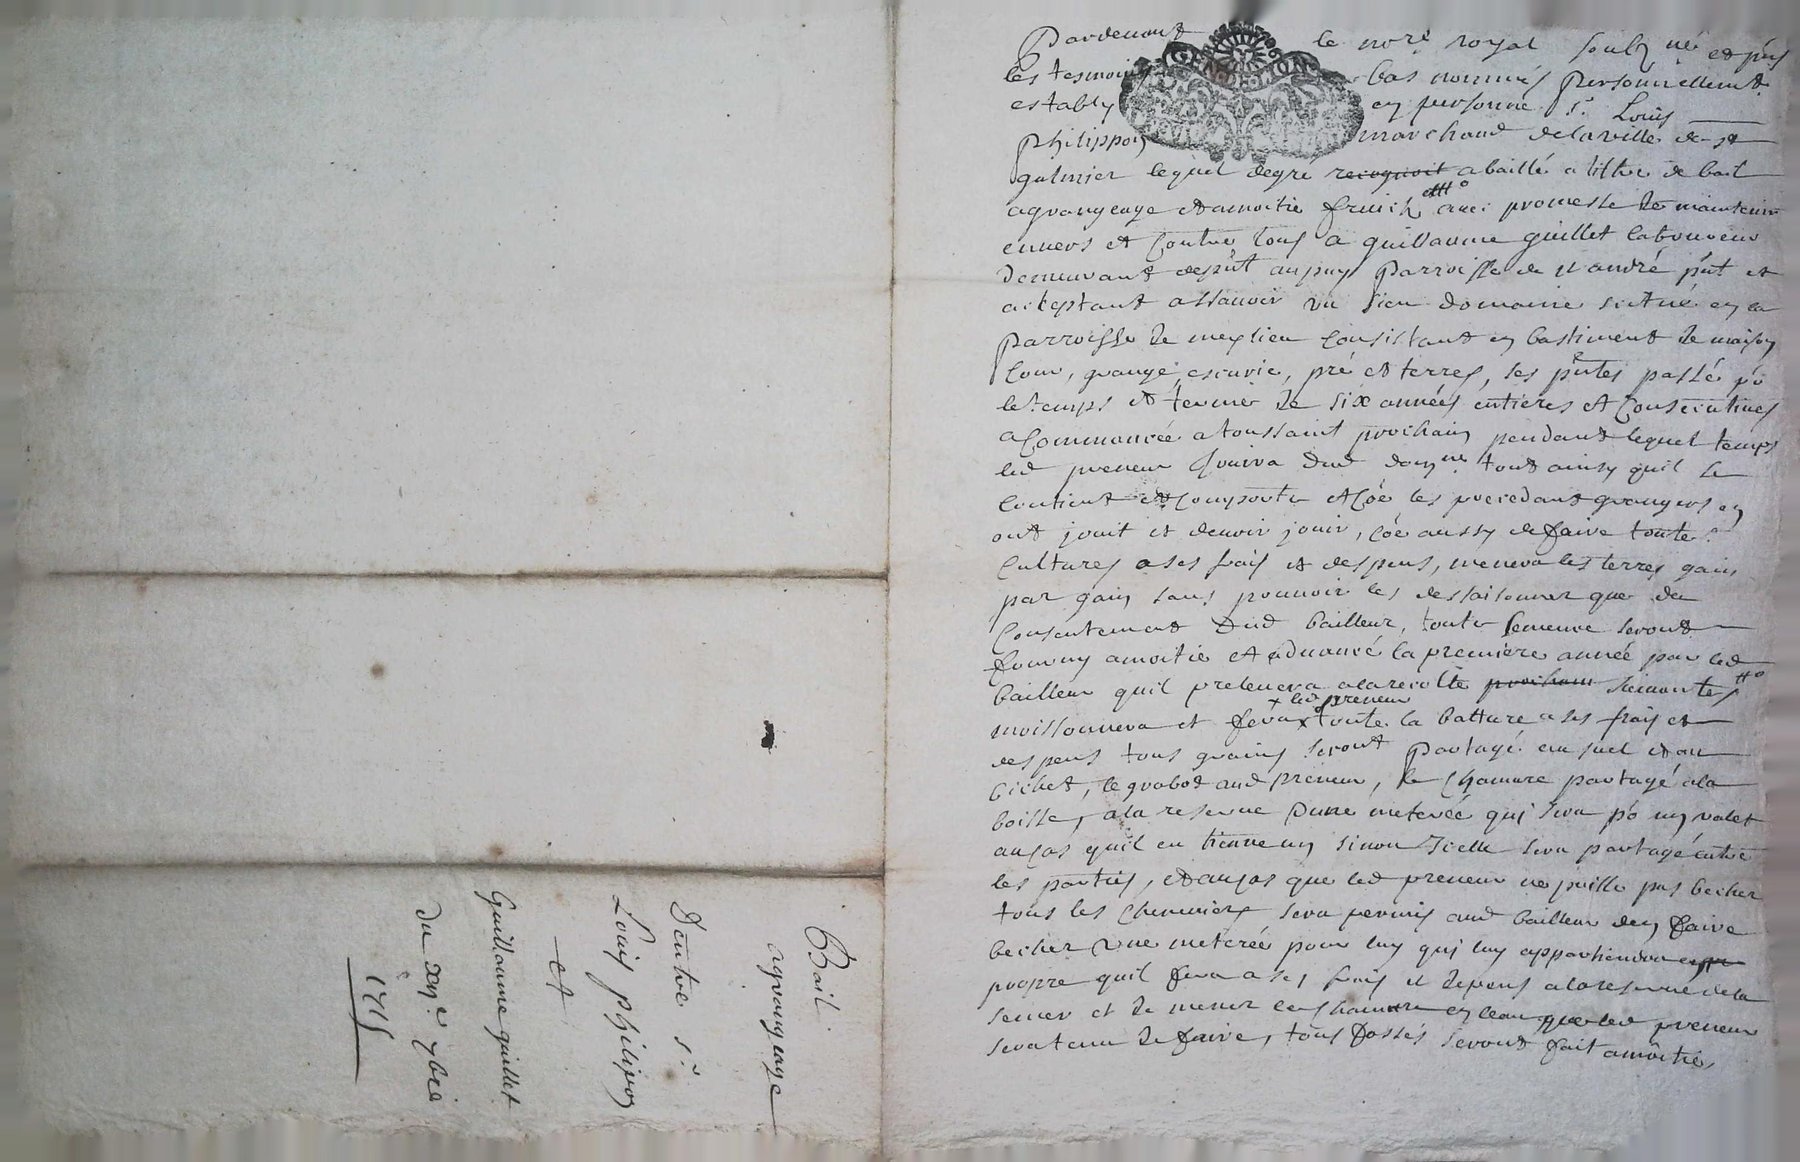 Pardevant le nore royal soubzné et pñs
les tesmoins bas nommés personnellemt
estably en personne sr Louis
philippon marchand de la ville de st
galmier lequel degré recognoit a baillé a tiltre de bail
a grangeage et a moitié fruich avec promesse de maintenir
envers et contre tous a guillaume guillet laboureur
demeurant depñt au puy parroisse de st andré pñt et
acteptant assavoir un sien domaine scitué en la
parroisse de meylieu consistant en bastiment de maison
cour, grange, escurie, pré et terres, les pñtes passé po
le temps et terme de six années entieres et consecutives
a commancée a toussaint prochain pendant lequel temps
led preneur jouira dud domne tout ainsy quil se
contient et comporte et coe les precedant grangers en
ont jouit et devoir jouir, coe aussy de faire toute
cultures a ses frais et despens, menera les terres gain
par gain sans pouvoir les dessaisonner que du
consentement dud bailleur, toute semence seront
fourny a moitié et advancé la premiere année par led
bailleur quil prelevera a la recolte prochain suivante
moissonnera et fera x toute la batture a ses frais et
x led preneur
despens tous grains seront partagé au suel et au
bichet, le grabot aud preneur, le chanvre partagé a la
boisse, a la reserve dune meterée qui sera po un valet
au cas quil en tienne un sinon icelle sera partagé entre
les parties, et au cas que led preneur ne puisse pas becher
tous les chenviers sera permis aud bailleur den faire
becher une meterée pour luy qui luy appartiendra en
propre quil fera a ses frais et depens a la reserve de la
semer et de mener le chanvre en leau que led preneur
sera tenu de faire, tous fossés seront fait a moitié,
Bail
a grangeage
Dentre sr
Louis philipon
et
Guillaume guillet
Du xije 7bre
1715